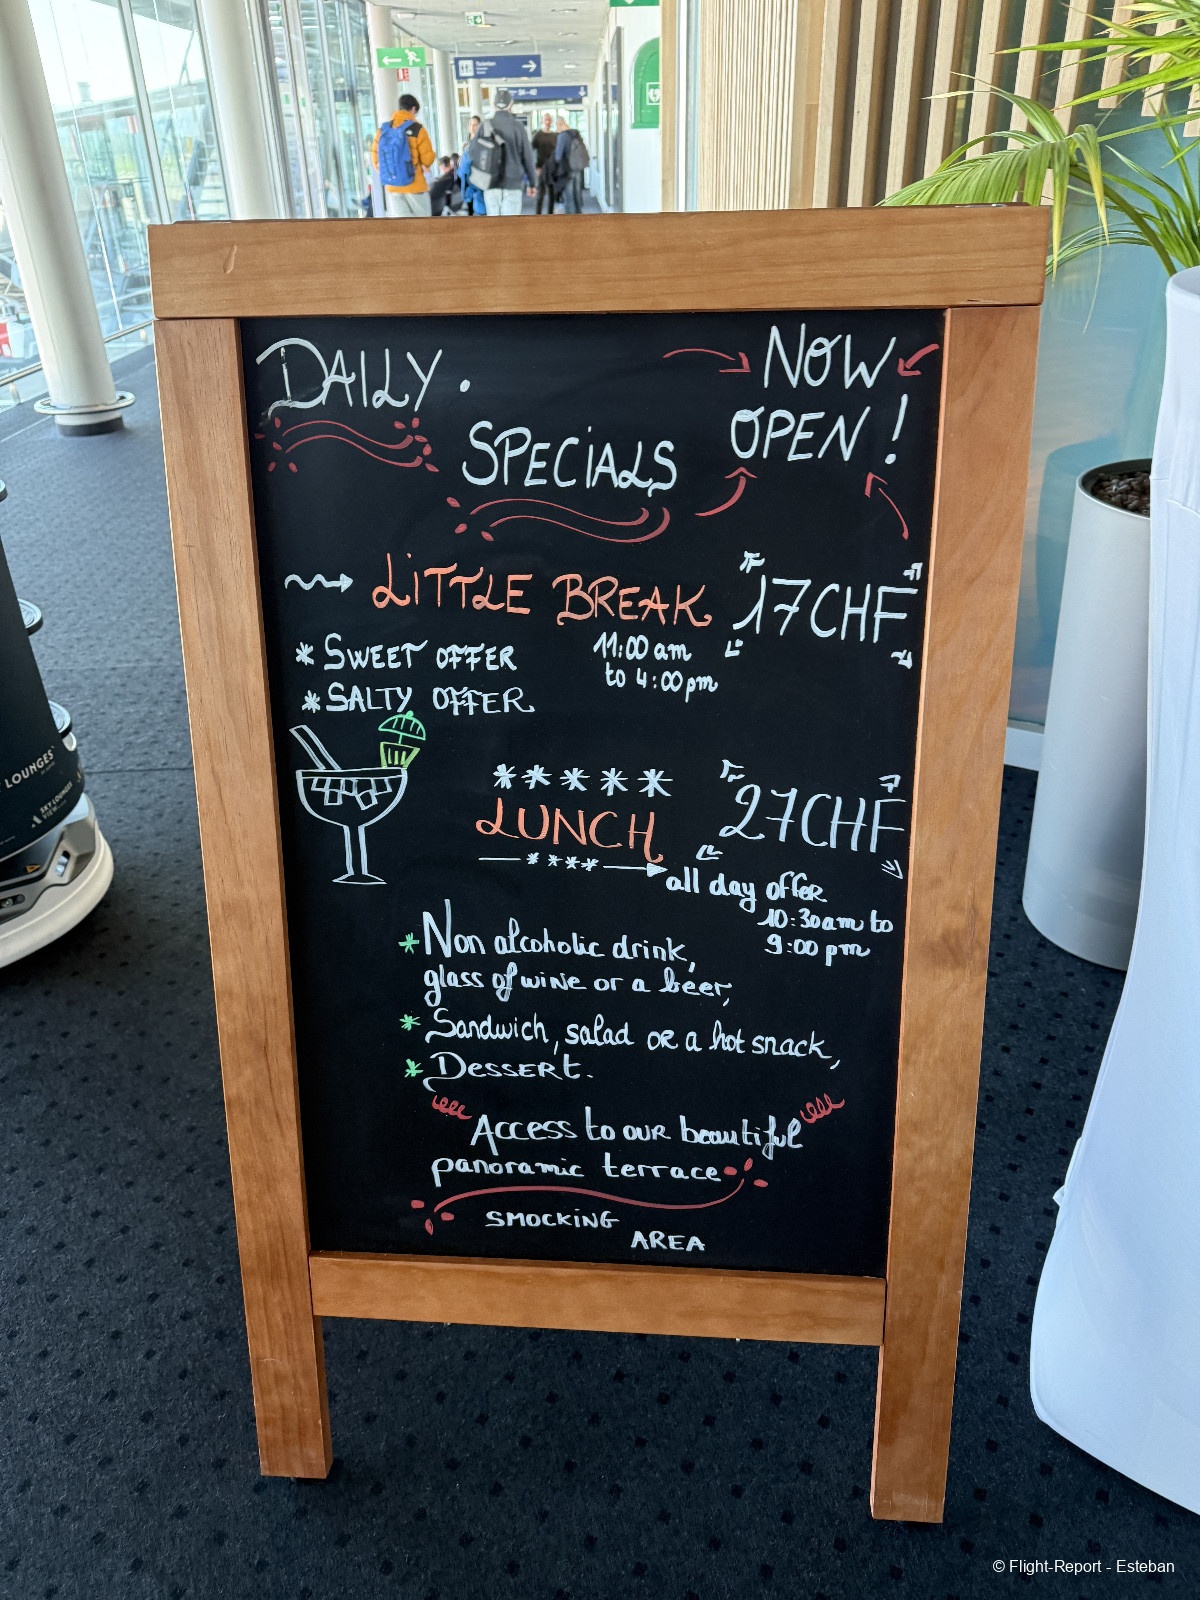 Toiletten
34-42
DAILY.
SPECIALS
NOW
OPEN!
LITTLE BREAK
17CHF
11:00 am
to 4:00pm
* SWEET OFFER
* SALTY OFFER
*****
LUNCH
****
27CHF
all day offer
10:30am to
9:00 pm
* Non alcoholic drink,
glass of wine or a beer,
* Sandwich, salad or a hot snack,
* DESSERt.
Access to our beautiful
panoramic terrace
SMOCKING
AREA
Y LOUNGES
SKY LOUNGES
© Flight-Report - Esteban